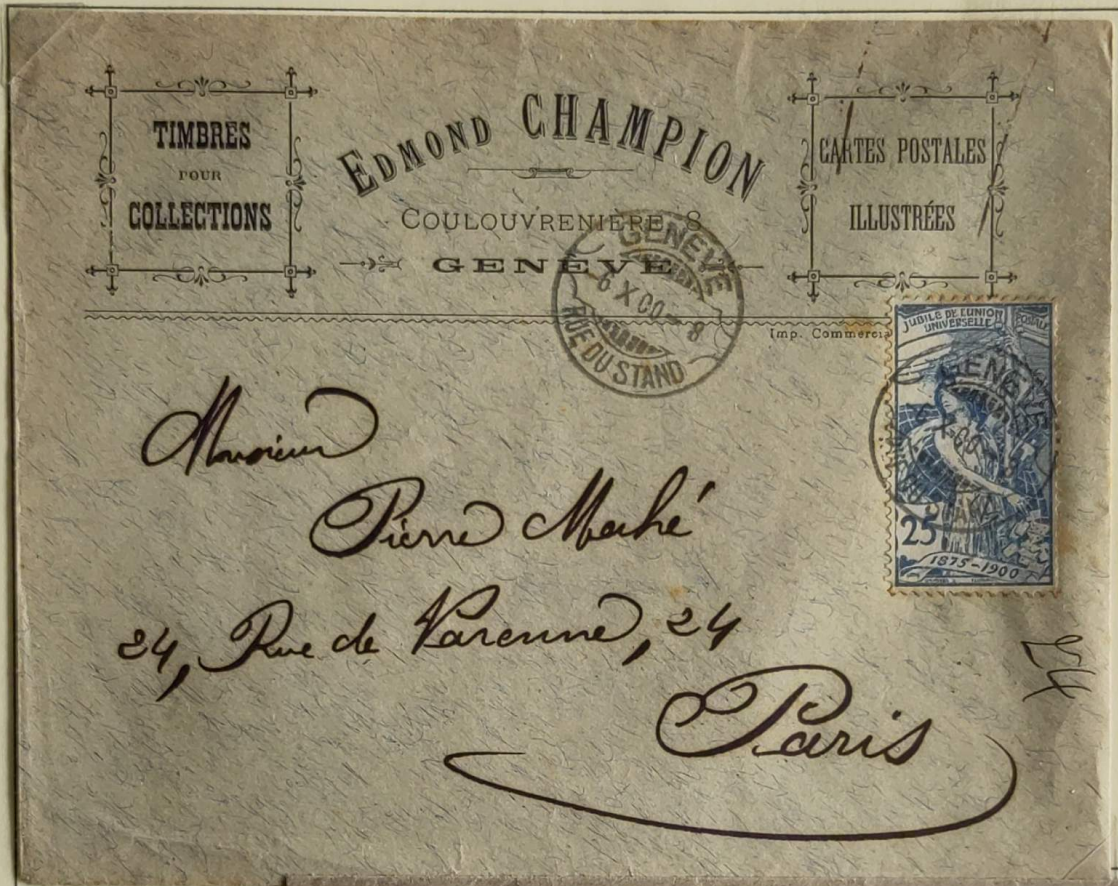 TIMBRES
POUR
COLLECTIONS
EDMOND CHAMPION
COULOUVRENIÈRE, 8
GENÈVE
CARTES POSTALES
ILLUSTRÉES
GENÈVE
6 X 00 – 8
RUE DU STAND
Imp. Commercia
JUBILÉ DE L'UNION
UNIVERSELLE POSTALE
GENÈVE
25
1875–1900
Monsieur
Pierre Mahé
24, Rue de Varenne, 24
Paris